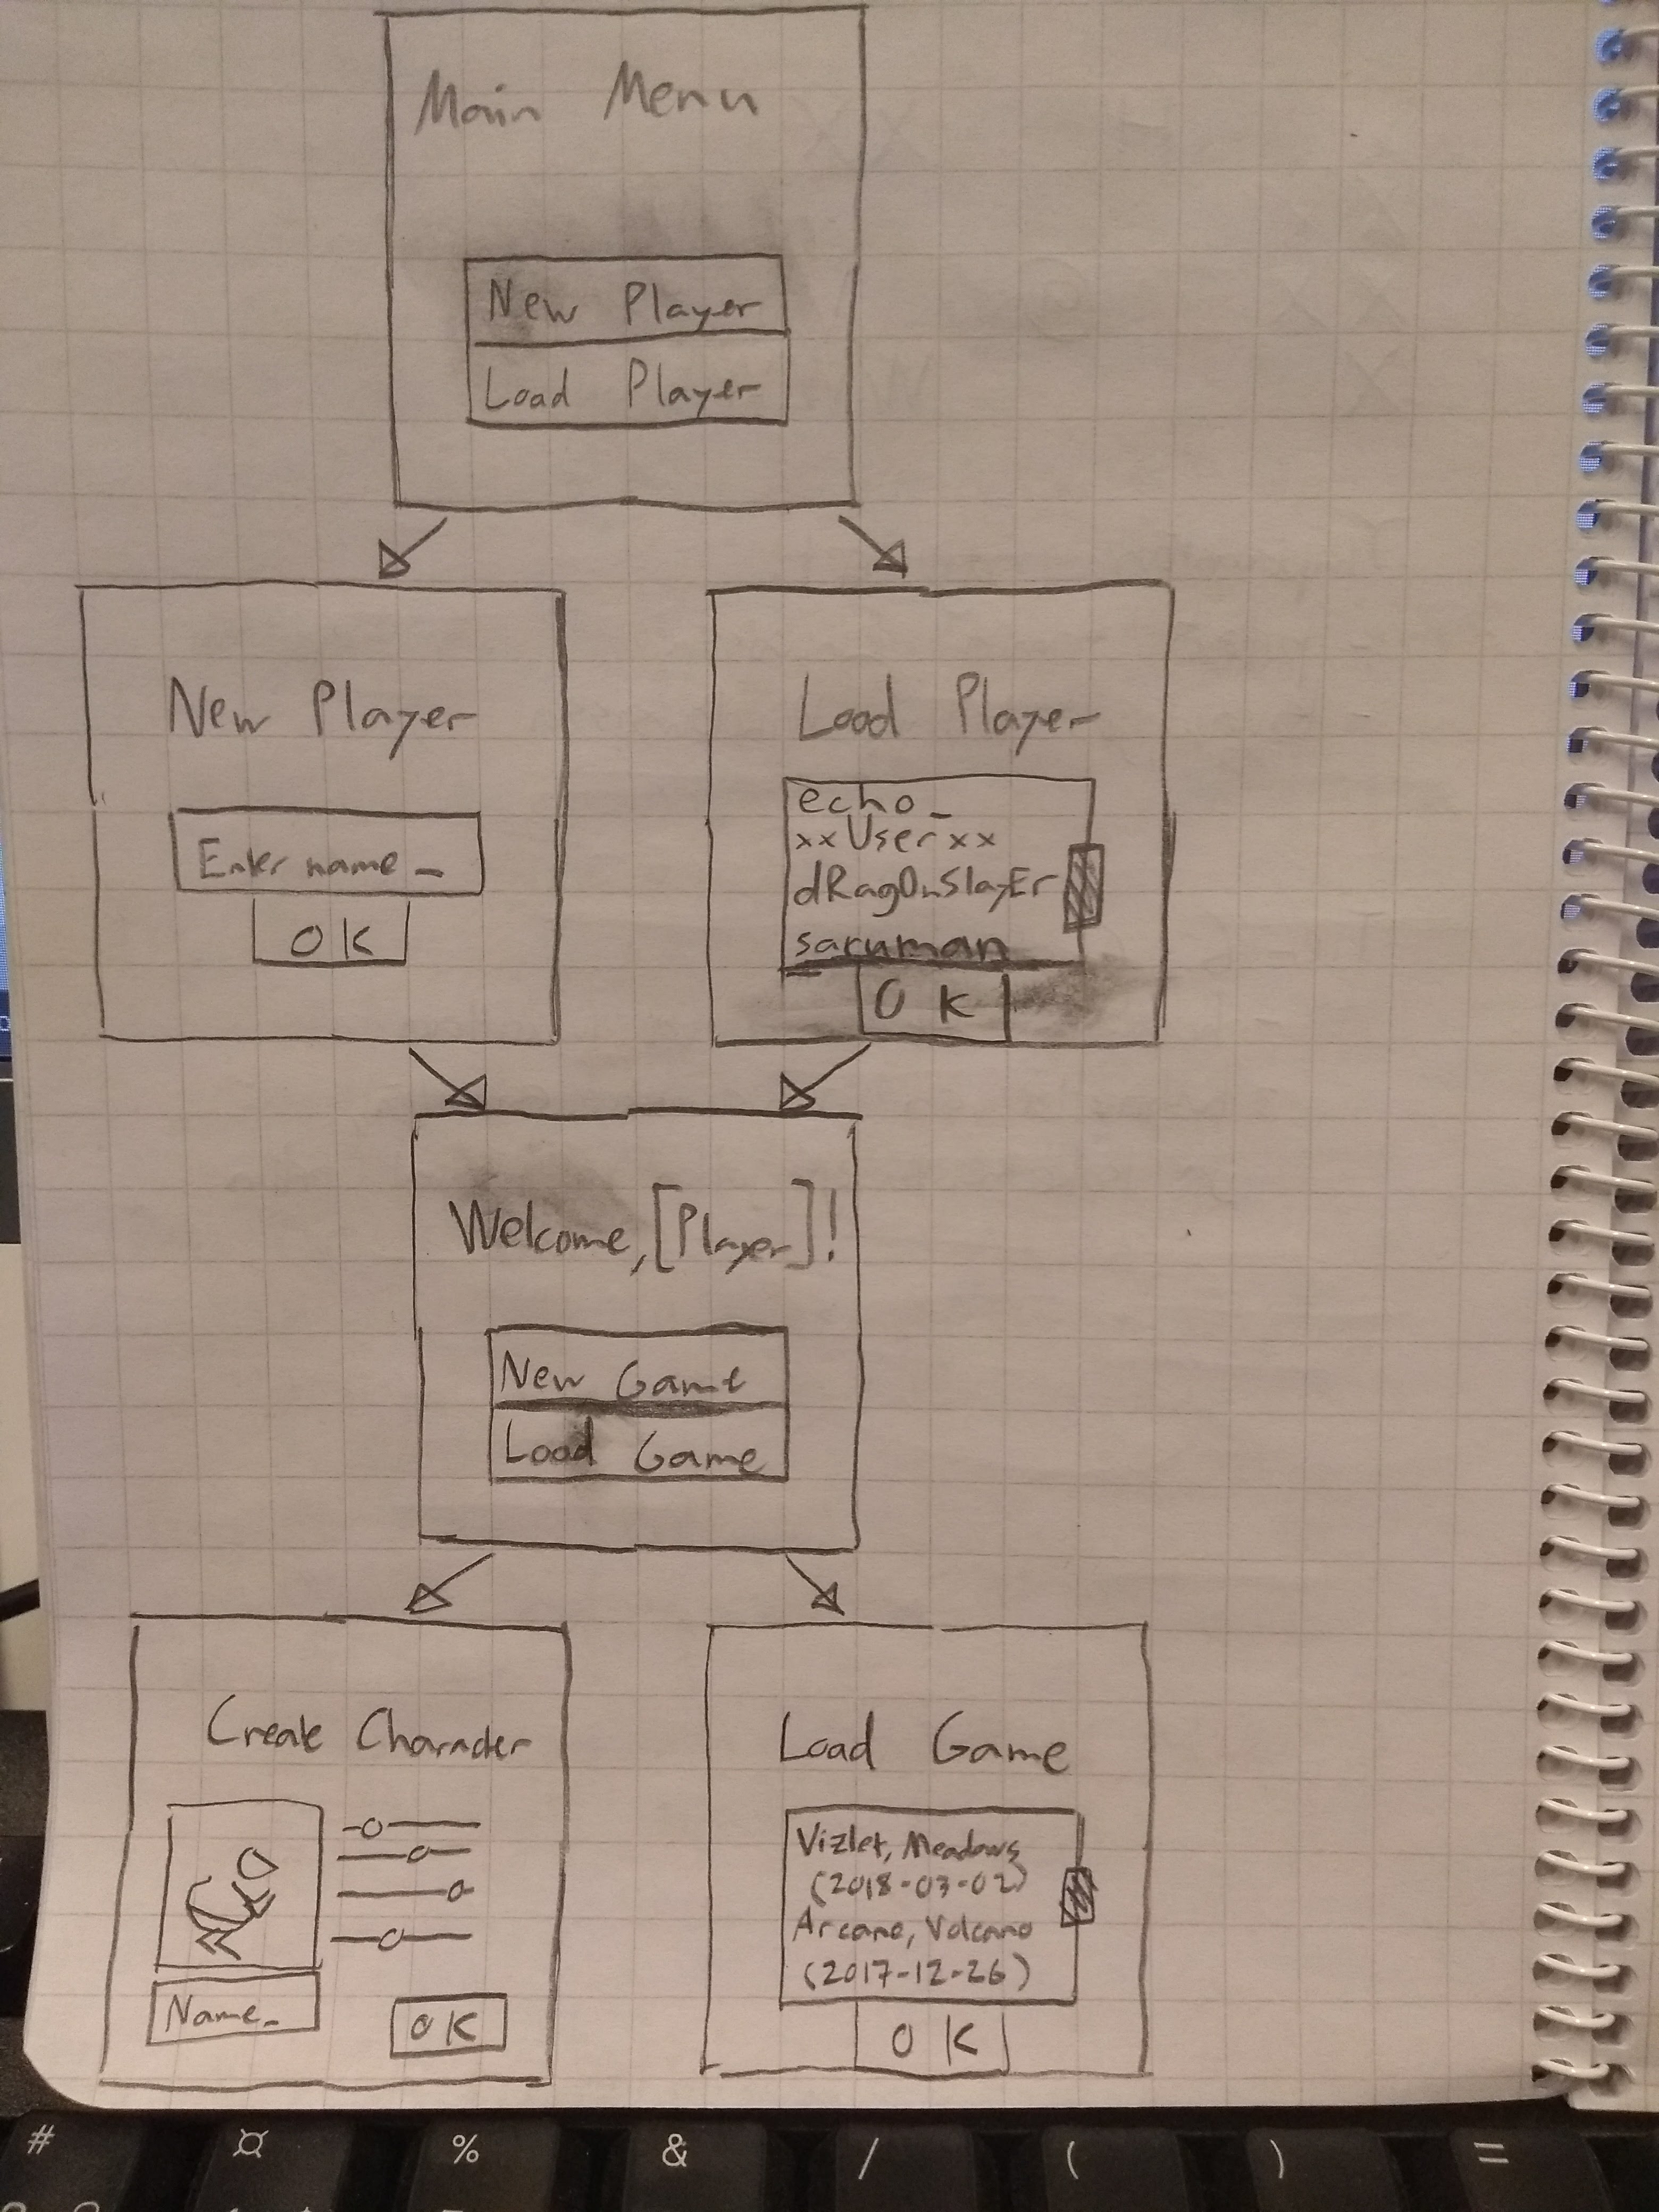 Main Menu
New Player
Load Player
New Player
Enter name_
OK
Load Player
echo_
xxUserxx
dRagOnSlayEr
saruman
OK
Welcome, [Player]!
New Game
Load Game
Create Character
Name_
OK
Load Game
Vizlet, Meadows
(2018-03-02)
Arcano, Volcano
(2017-12-26)
OK
# ¤ % & / ( ) =